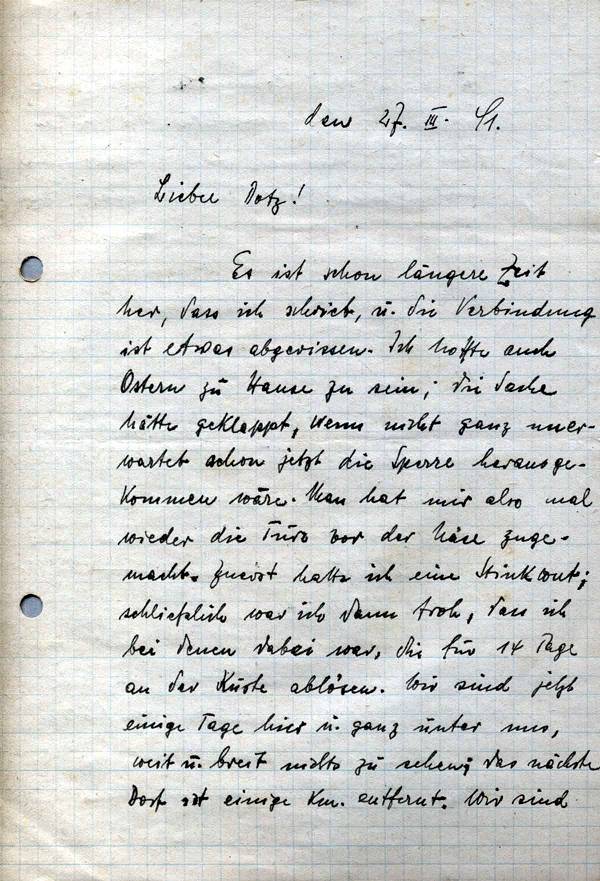 den 27. III. 41.
Lieber Dotz!
Es ist schon längere Zeit
her, dass ich schrieb, u. die Verbindung
ist etwas abgerissen. Ich hoffte auch
Ostern zu Hause zu sein; die Sache
hätte geklappt, wenn nicht ganz uner-
wartet schon jetzt die Sperre herausge-
kommen wäre. Man hat mir also mal
wieder die Türe vor der Nase zuge-
macht. Zuerst hatte ich eine Stinkwut;
schließlich war ich dann froh, dass ich
bei denen dabei war, die für 14 Tage
an der Küste ablösen. Wir sind jetzt
einige Tage hier u. ganz unter uns,
weit u. breit nichts zu sehen; das nächste
Dorf ist einige Km. entfernt. Wir sind